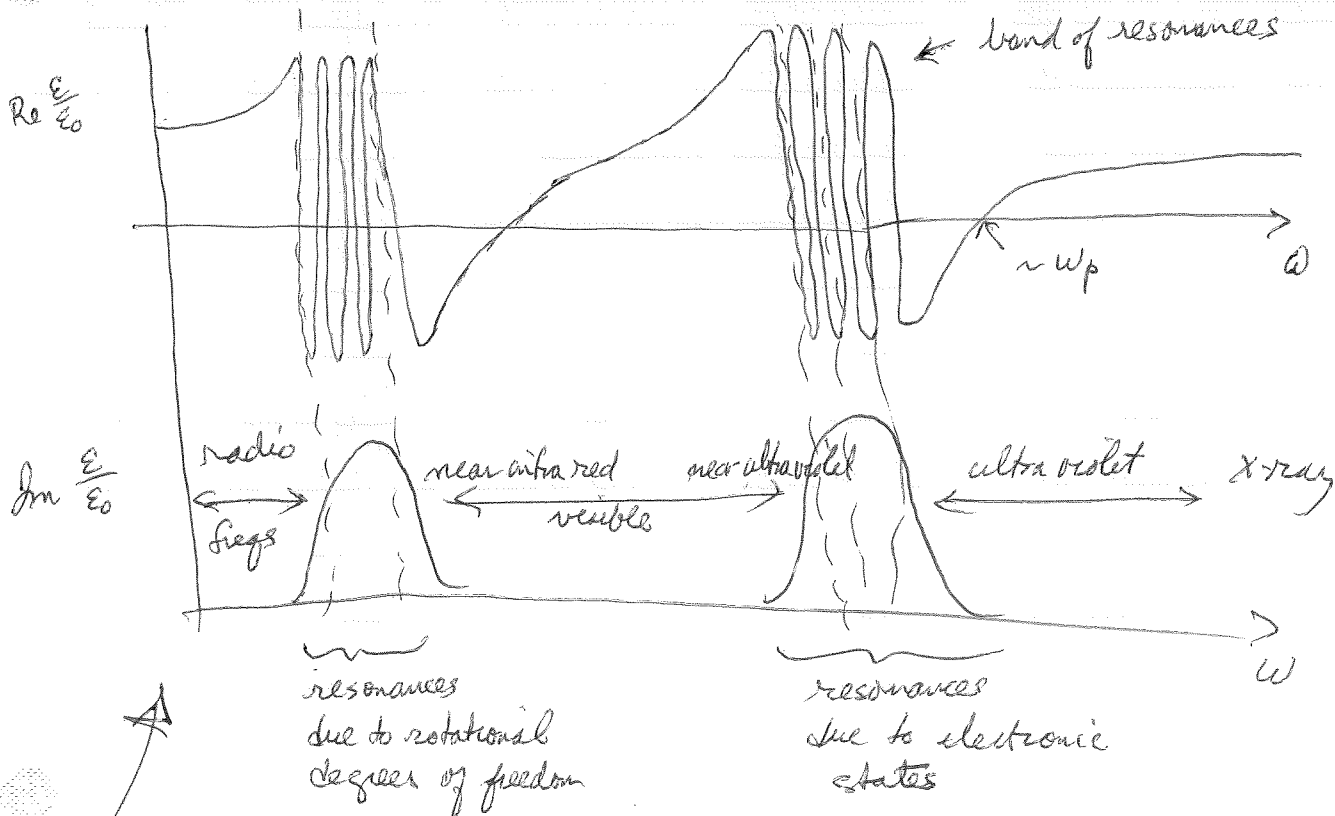 band of resonances
Re ε/ε0
~ ωp
ω
Im ε/ε0
radio
freqs
near infra red
visible
near ultraviolet
ultra violet
x-ray
ω
resonances
due to rotational
degrees of freedom
resonances
due to electronic
states